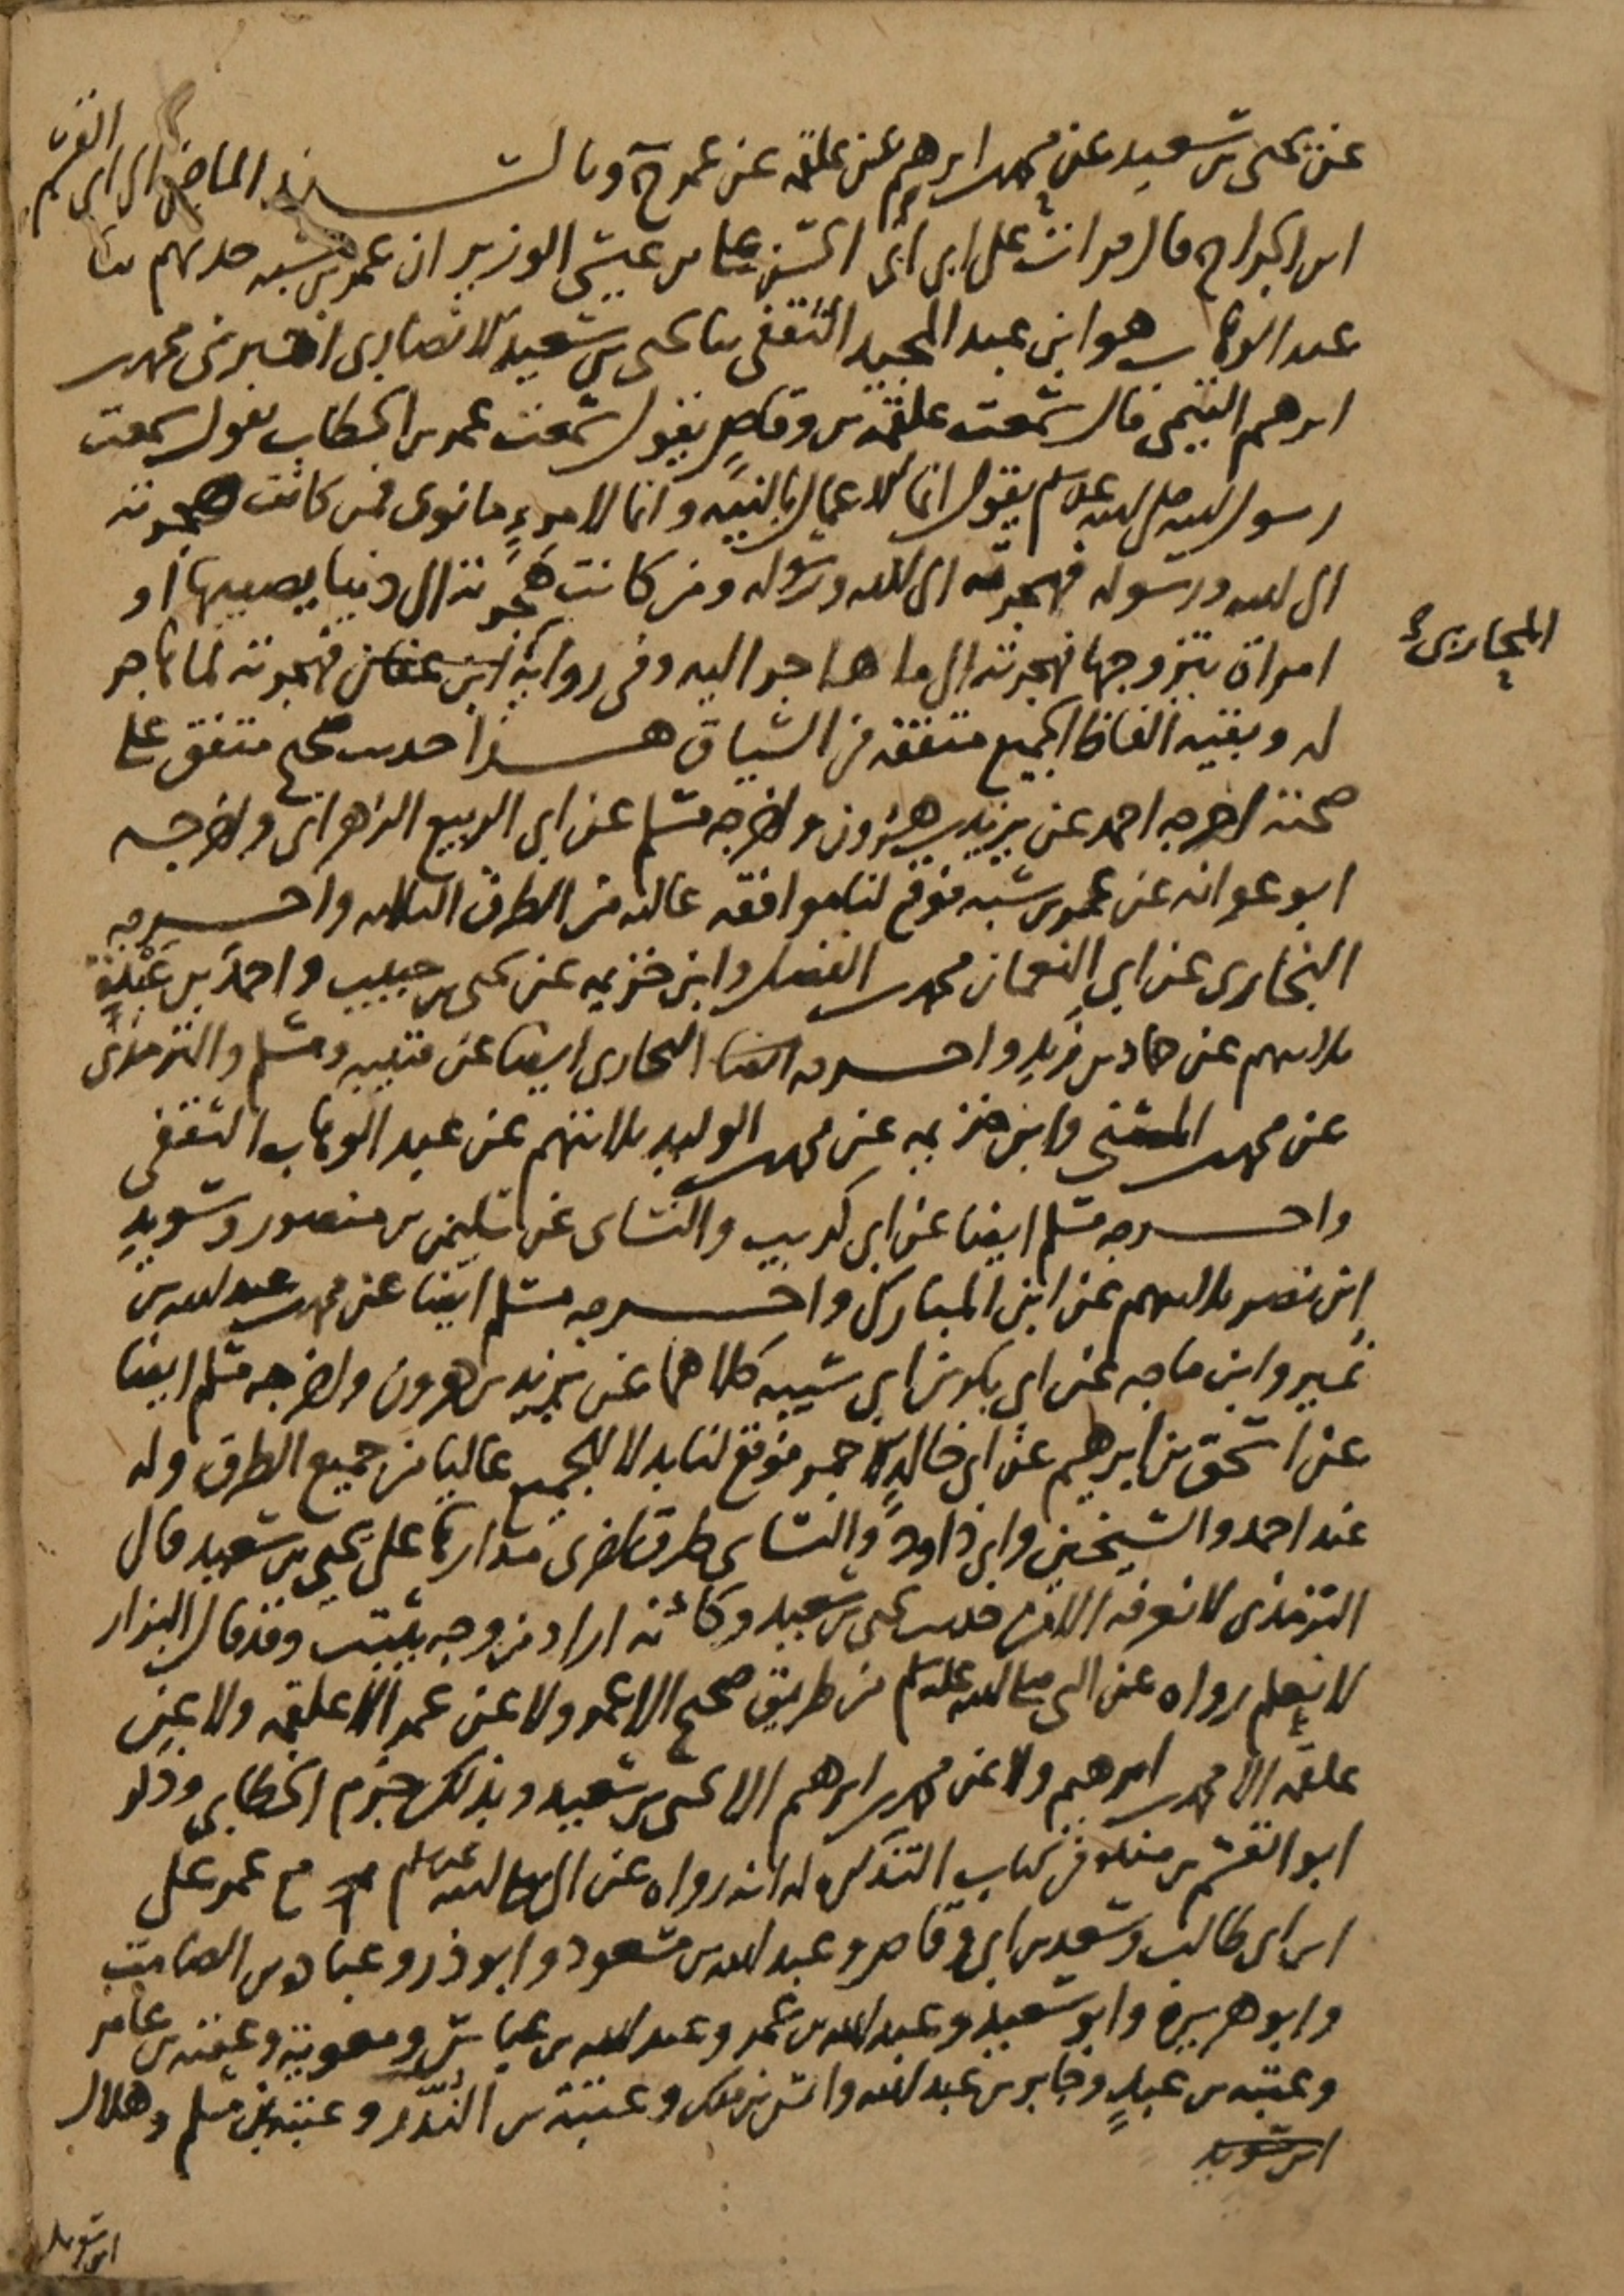 عن يحيى بن سعيد عن محمد بن ابرهيم عن علقمه عن عمر ح وبالسند الماضي الى ابي القسم
ابن الجراح قال قرات على ابي الحسن علي بن عيسى الوزير ان عمر بن شبه حدثهم ثنا
عبد الوهاب هو ابن عبد المجيد الثقفي ثنا يحيى بن سعيد الانصاري اخبرني محمد بن
ابرهيم التيمي قال سمعت علقمة بن وقاص يقول سمعت عمر بن الخطاب يقول سمعت
رسول الله صلى الله عليه وسلم يقول انما الاعمال بالنيه وانما لامرءٍ ما نوى فمن كانت هجرته
الى الله ورسوله فهجرته الى الله ورسوله ومن كانت هجرته الى دنيا يصيبها او
امراة يتزوجها فهجرته الى ما هاجر اليه وفي رواية فهجرته لما هاجر
المحاربي
له وبقيه الفاظ الجميع متفقه في السياق هذا حديث صحيح متفق على
صحته اخرجه احمد عن يزيد بن هرون واخرجه مسلم عن ابي الربيع الزهراني واخرجه
ابو عوانه عن عمر بن شبه فوقع لنا موافقه عاليه من الطرق الثلاثه واخرجه
البخاري عن ابي النعمان محمد بن الفضل وابن خزيمه عن يحيى بن حبيب واحمد بن عبدة
ثلاثتهم عن حماد بن زيد واخرجه البخاري ايضا عن قتيبه ومسلم والترمذي
عن محمد بن المثنى وابن خزيمه عن محمد بن الوليد ثلاثتهم عن عبد الوهاب الثقفي
واخرجه مسلم ايضا عن ابي كريب والنسائي عن سليمن بن منصور وسويد
ابن نصر ثلاثتهم عن ابن المبارك واخرجه مسلم ايضا عن محمد بن عبد الله بن
نمير وابن ماجه عن ابي بكر بن ابي شيبه كلاهما عن يزيد بن هرون واخرجه مسلم ايضا
عن اسحق بن ابرهيم عن ابي خالد الاحمر فوقع لنا بدلا للجميع عاليا من جميع الطرق وله
عند احمد والشيخين وابي داود والنسائي طرق اخرى مدارها على يحيى بن سعيد قال
الترمذي لا نعرفه الا من حديث يحيى بن سعيد وكأنه اراد من وجه يثبت وقد قال البزار
لا نعلم رواه عن النبي صلى الله عليه وسلم من طريق صحيح الا عمر ولا عن عمر الا علقمه ولا عن
علقمه الا محمد بن ابرهيم ولا عن محمد بن ابرهيم الا يحيى بن سعيد وبذلك جزم الخطابي وذكر
ابو القسم بن منده في كتاب التذكره له انه رواه عن النبي صلى الله عليه وسلم مع عمر علي
ابن ابي طالب وسعد بن ابي وقاص وعبد الله بن مسعود وابو ذر وعباده بن الصامت
وابو هريرة وابو سعيد وعبد الله بن عمر وعبد الله بن عباس ومعوية وعقبه بن عامر
وعتبه بن عبدٍ وجابر بن عبد الله وانس بن ملك وعتبة بن النُّدَّر وعتبة بن مسلم وهلال
ابن سويد
ابن سويد